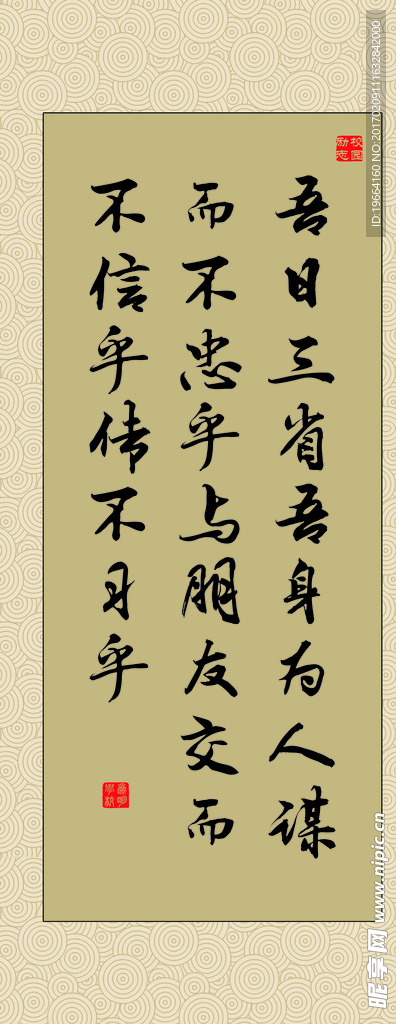 吾日三省吾身为人谋
而不忠乎与朋友交而
不信乎传不习乎
校园励志
ID:19664160 NO:20170209111632842000
昵享网 www.nipic.cn